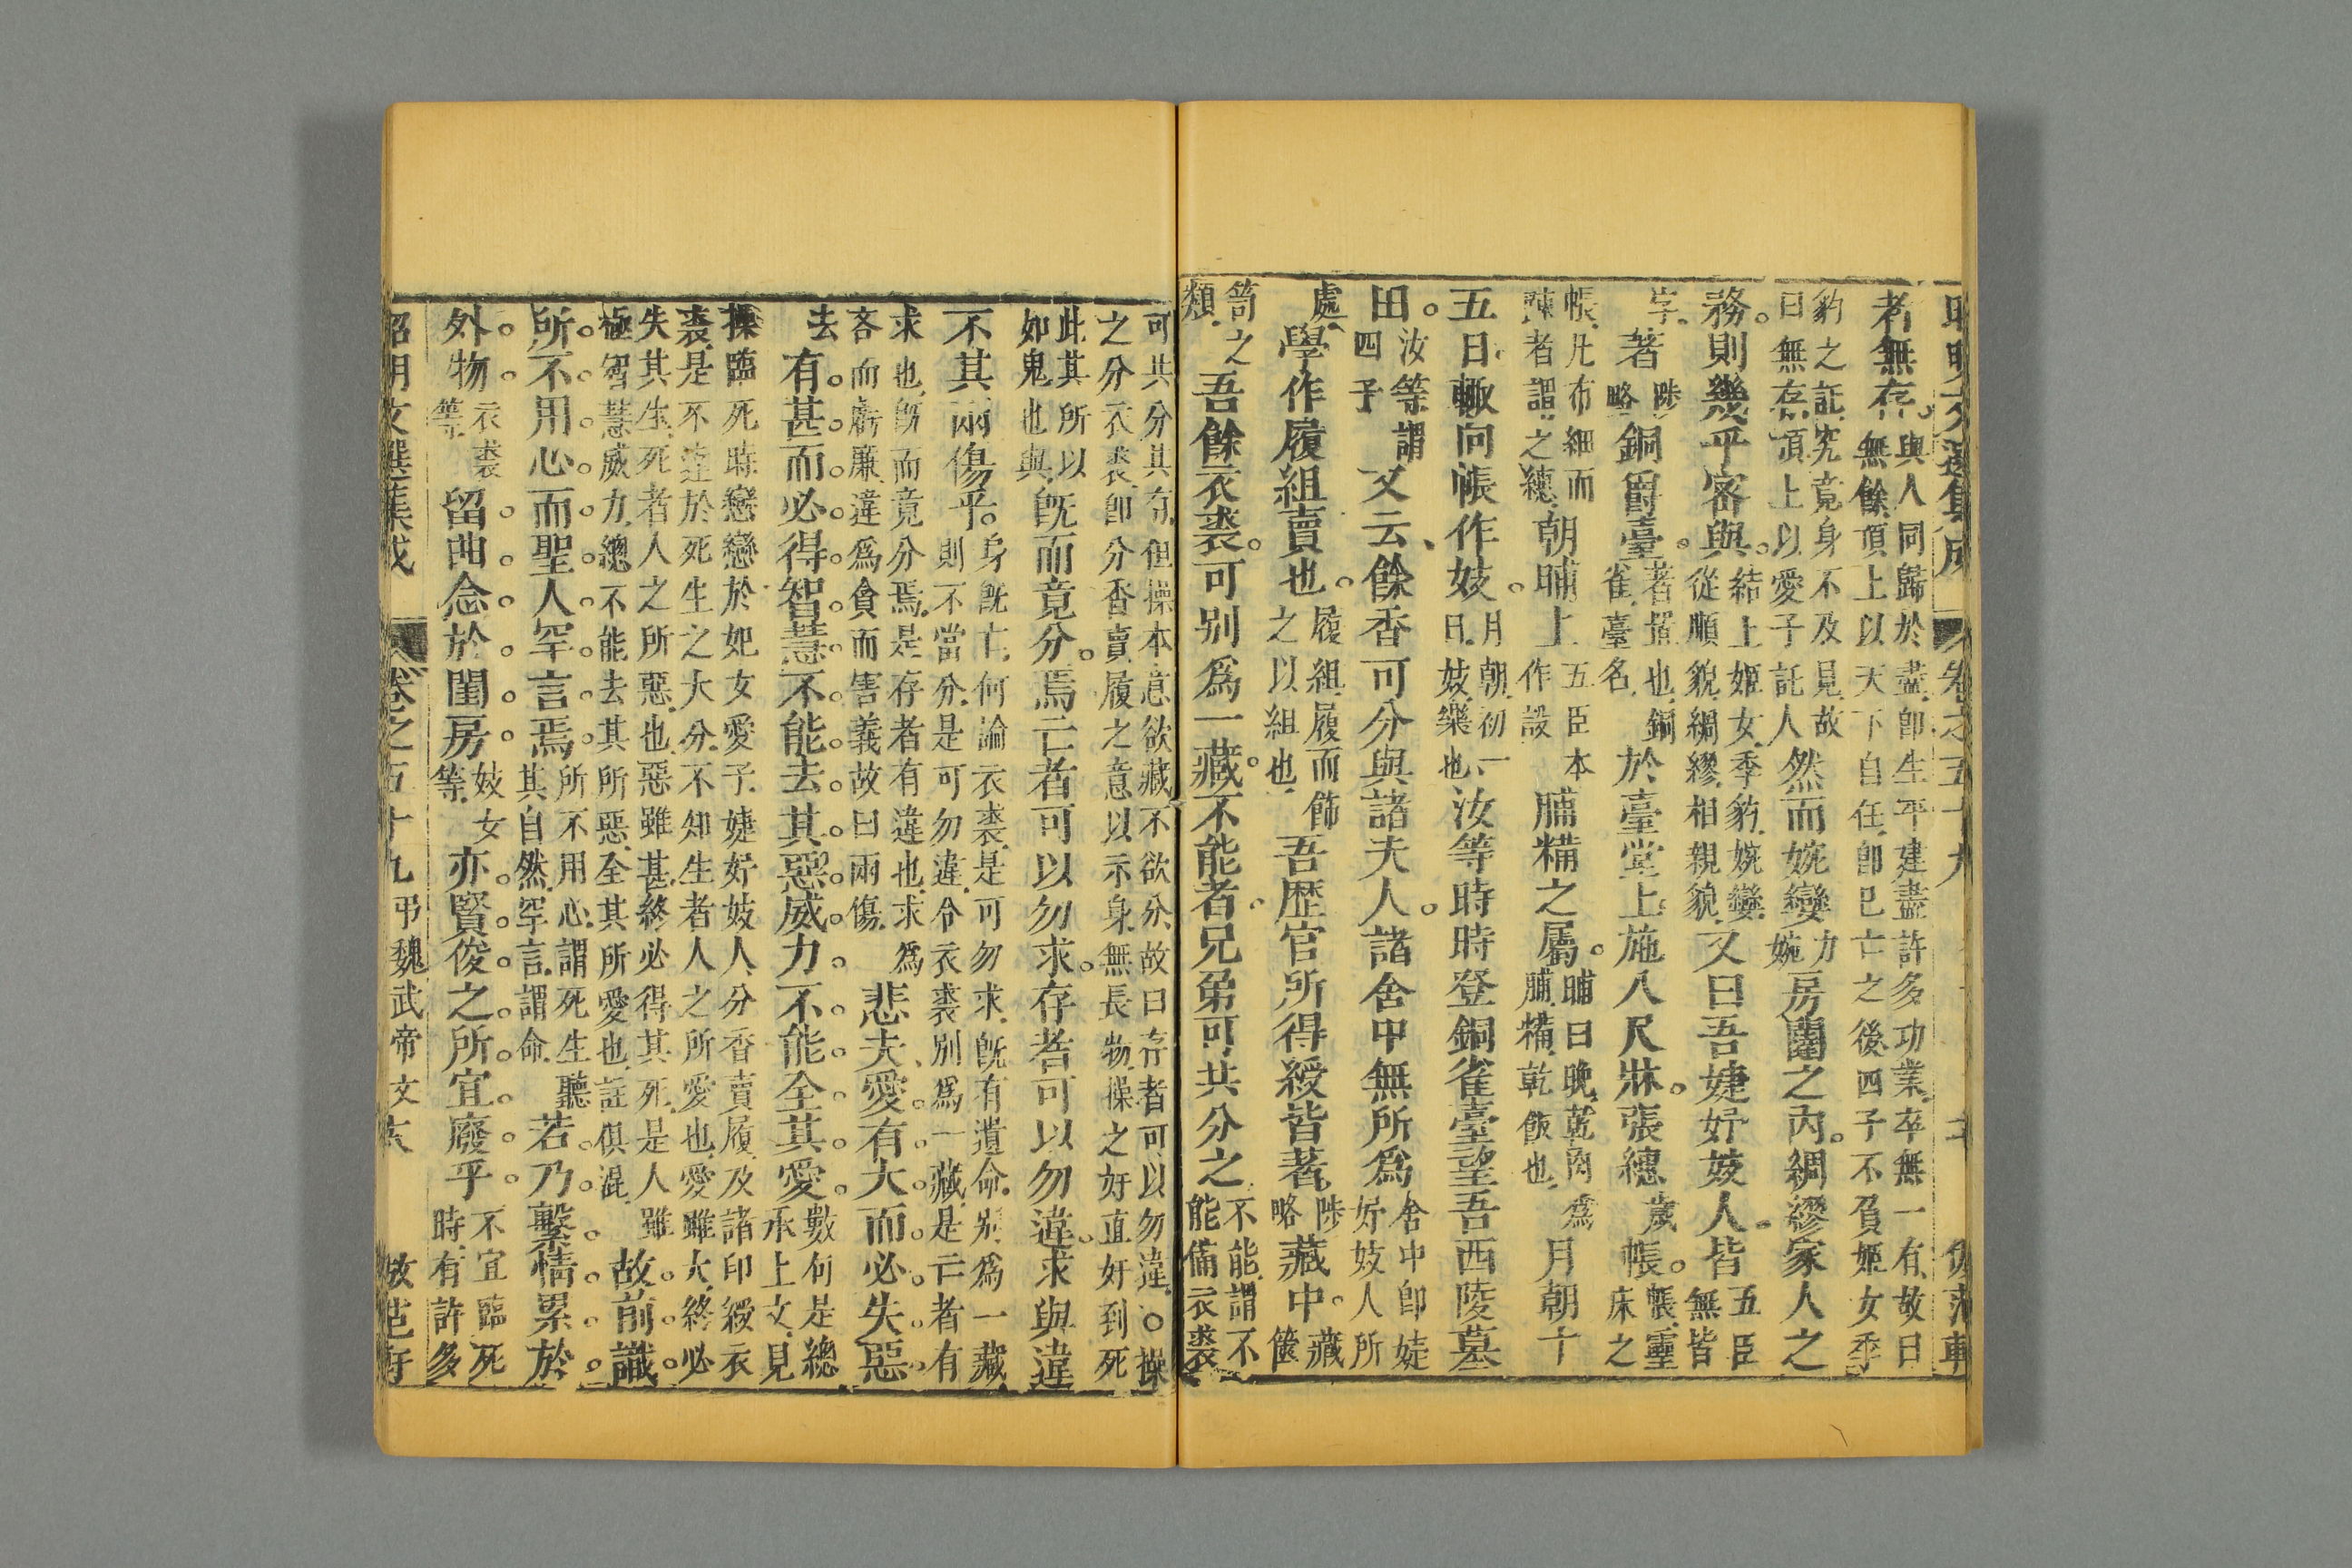 昭明文選集成 卷之五十九
者無存。與人同歸於盡即生平建盡許多功業卒無一有故曰無餘頂上以天下自任即已亡之後四子不負姬女季
豹之託究竟身不及見故曰無存頂上以愛子託人然而婉孌力婉房闥之內。綢繆家人之
務。則幾乎密與。結上姬女季豹婉孌從順貌綢繆相親貌又曰吾婕妤妓人。皆五臣無皆
字。著陟略銅爵臺。著置也銅雀臺名於臺堂上。施八尺牀。張繐歲帳。帳靈床之
帳凡布細而陳者謂之繐朝晡上五臣本作設脯糒之屬。晡日晚乾肉爲脯糒乾飯也月朝十
五日。輙向帳作妓。月朝初一日妓樂也汝等時時登銅雀臺望吾西陵墓
田。汝等謂四子又云餘香可分與諸夫人。諸舍中無所爲舍中即婕妤妓人所
處學作履組賣也。履組履而飾之以組也吾歴官所得綬皆著陟略藏中。藏篋
笥之類吾餘衣裘。可別爲一藏。不能者。兄弟可共分之不能謂不能備衣裘
可共分其存但操本意欲藏不欲分故曰存者可以勿違。○操之分衣裘即分香賣履之意以示身無長物操之好直好到死
此其所以如鬼也與既而竟分。焉亡者可以勿求。存者可以勿違。求與違
不其兩傷乎。身既亡何論衣裘是可勿求既有遺命別爲一藏則不當分是可勿違令衣裘別爲一藏是亡者有
求也既而竟分焉是存者有違也求爲吝而虧廉違爲貪而害義故曰兩傷悲夫愛有大而必失惡
去有甚而必得智慧不能去其惡威力不能全其愛數句是總承上文見
操臨死時戀戀於妃女愛子婕妤妓人分香賣履及諸印綬衣裘是不達於死生之大分不知生者人之所愛也愛雖大終必
失其生死者人之所惡也惡雖甚終必得其死是人雖極智慧威力總不能去其所惡全其所愛也註俱混故前識
所不用心而聖人罕言焉所不用心謂死生聽其自然罕言謂命若乃繫情累於
外物衣裘等留曲念於閨房妓女等亦賢俊之所宜廢乎。不宜臨死時有許多
昭明文選集成 卷之五十九 弔魏武帝文